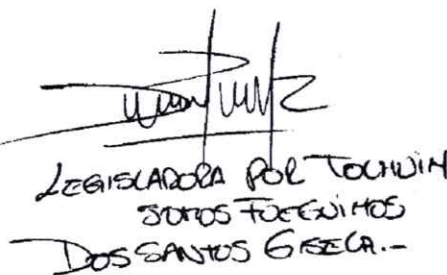 LEGISLADORA POR TOLHUIN
SOMOS FUEGUINOS
DOS SANTOS GISELA.-